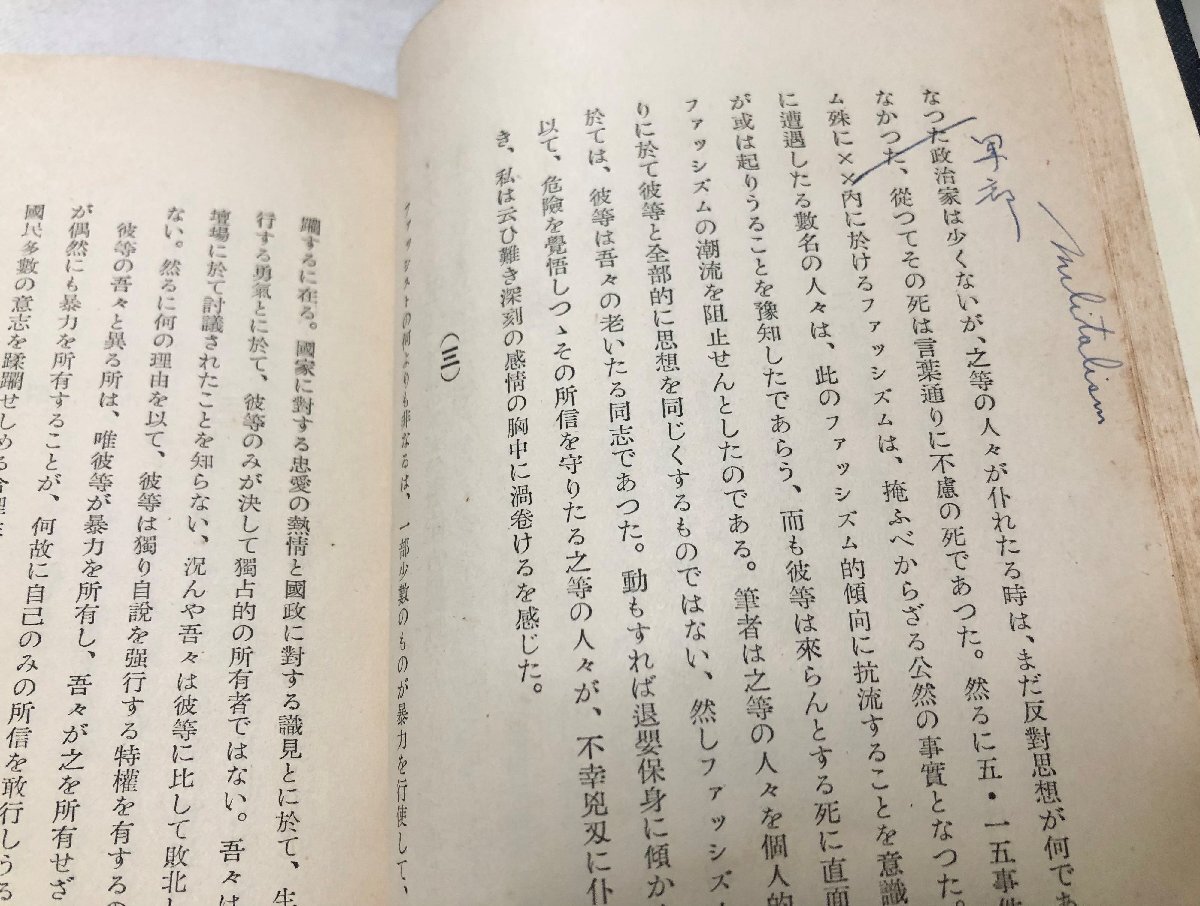 militalism
軍部
なつた政治家は少くないが、之等の人々が仆れたる時は、まだ反對思想が何であ
なかつた、從つてその死は言葉通りに不慮の死であつた。然るに五・一五事件
ム殊に××內に於けるファッシズムは、掩ふべからざる公然の事實となつた。
に遭遇したる數名の人々は、此のファッシズム的傾向に抗流することを意識
が或は起りうることを豫知したであらう、而も彼等は來らんとする死に直面
ファッシズムの潮流を阻止せんとしたのである。筆者は之等の人々を個人的
りに於て彼等と全部的に思想を同じくするものではない、然しファッシズ
於ては、彼等は吾々の老いたる同志であつた。動もすれば退嬰保身に傾か
以て、危險を覺悟しつゝその所信を守りたる之等の人々が、不幸兇刄に仆
き、私は云ひ難き深刻の感情の胸中に渦卷けるを感じた。
(三)
ファッシストの何よりも非なるは、一部少數のものが暴力を行使して、
躙するに在る。國家に對する忠愛の熱情と國政に對する識見とに於て、生
行する勇氣とに於て、彼等のみが決して獨占的の所有者ではない。吾々は
壇場に於て討議されたことを知らない、況んや吾々は彼等に比して敗北し
ない。然るに何の理由を以て、彼等は獨り自說を强行する特權を有するの
彼等の吾々と異る所は、唯彼等が暴力を所有し、吾々が之を所有せざ
が偶然にも暴力を所有することが、何故に自己のみの所信を敢行しうる
國民多數の意志を蹂躙せしめる合理